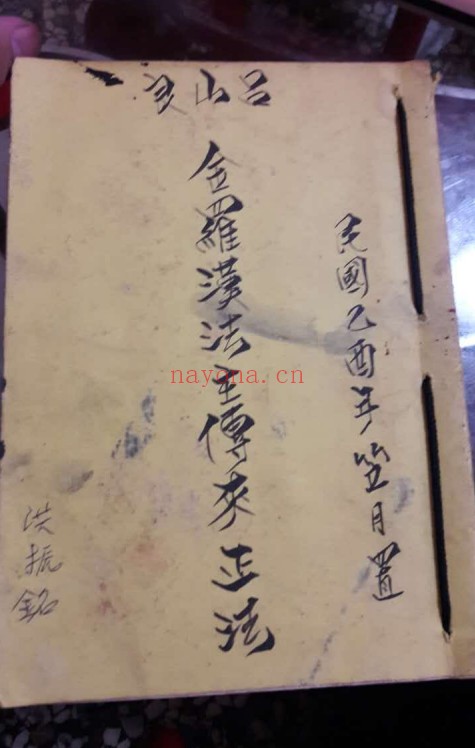 呂山
民國乙酉年笠月置
金羅漢法主傳來正法
洪振銘
nayona.cn